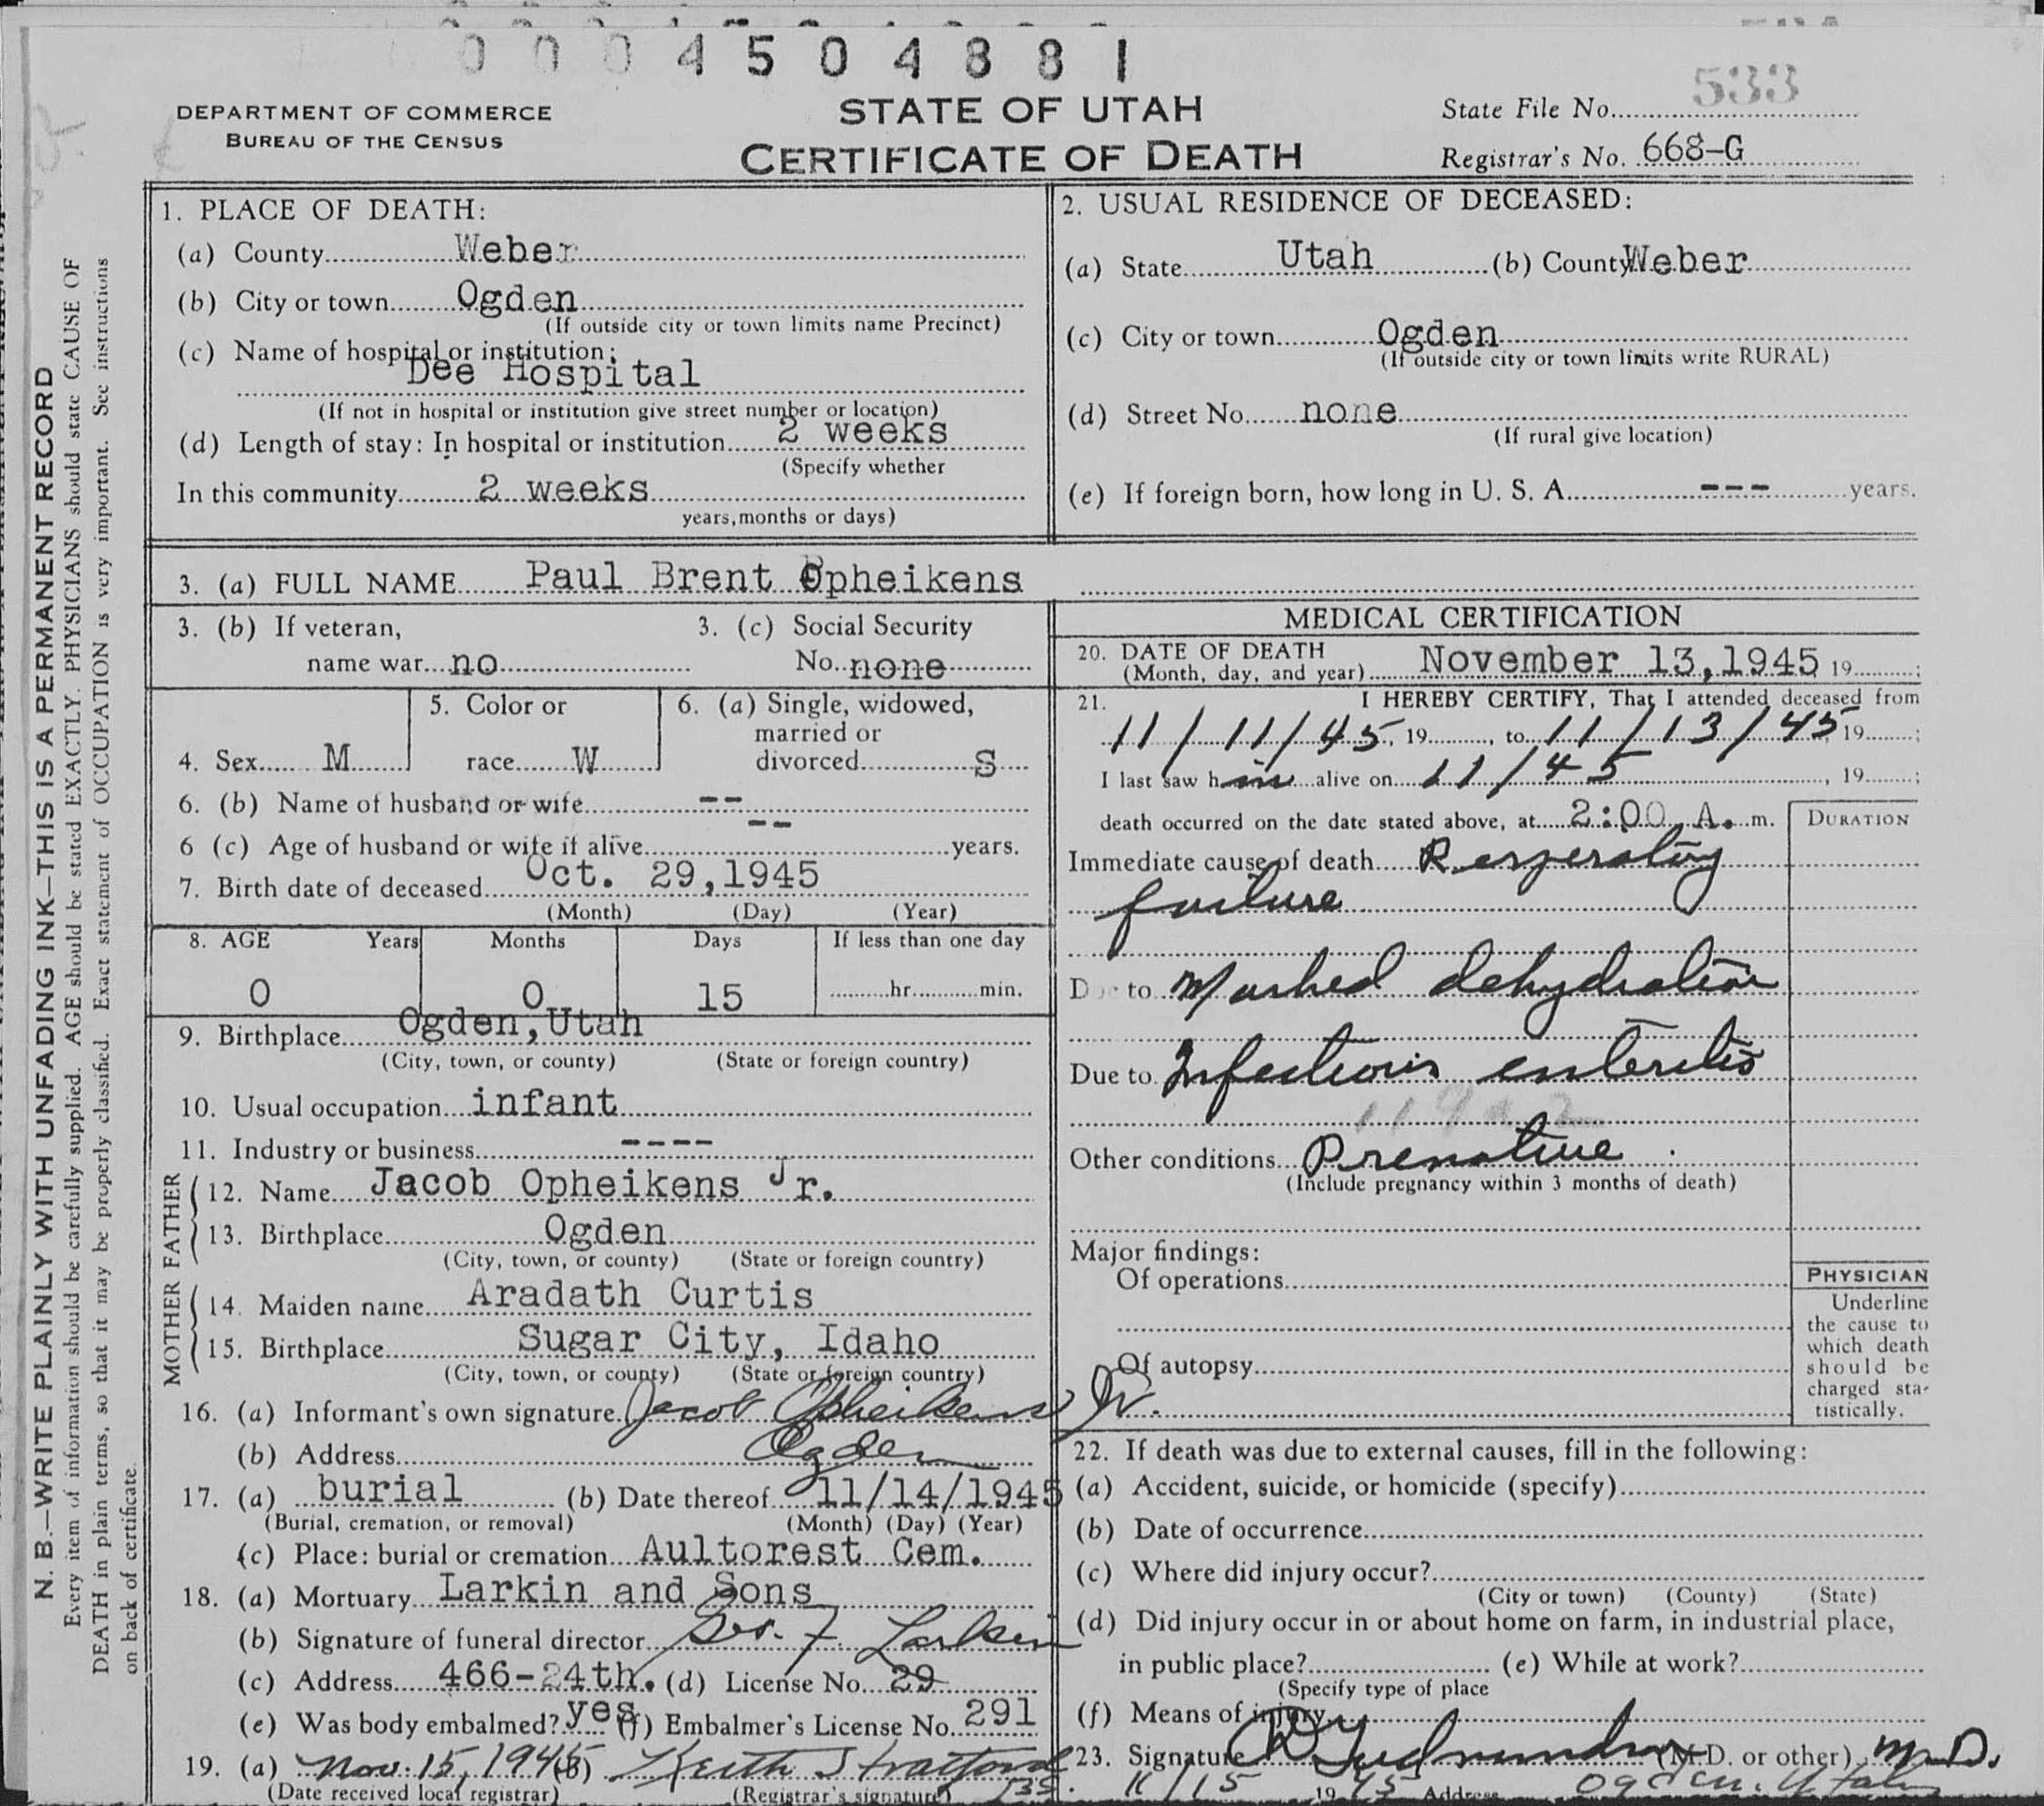 0 0 0 4 5 0 4 8 8 1
DEPARTMENT OF COMMERCE
BUREAU OF THE CENSUS
STATE OF UTAH
CERTIFICATE OF DEATH
State File No. 533
Registrar's No. 668-G
N. B.—WRITE PLAINLY WITH UNFADING INK—THIS IS A PERMANENT RECORD
Every item of information should be carefully supplied. AGE should be stated EXACTLY. PHYSICIANS should state CAUSE OF
DEATH in plain terms, so that it may be properly classified. Exact statement of OCCUPATION is very important. See instructions
on back of certificate.
1. PLACE OF DEATH:
(a) County Weber
(b) City or town Ogden
(If outside city or town limits name Precinct)
(c) Name of hospital or institution:
Dee Hospital
(If not in hospital or institution give street number or location)
(d) Length of stay: In hospital or institution 2 weeks
(Specify whether
In this community 2 weeks
years, months or days)
2. USUAL RESIDENCE OF DECEASED:
(a) State Utah (b) County Weber
(c) City or town Ogden
(If outside city or town limits write RURAL)
(d) Street No. none
(If rural give location)
(e) If foreign born, how long in U. S. A. --- years.
3. (a) FULL NAME Paul Brent Opheikens
3. (b) If veteran,
name war no
3. (c) Social Security
No. none
4. Sex M
5. Color or
race W
6. (a) Single, widowed,
married or
divorced S
6. (b) Name of husband or wife --
6 (c) Age of husband or wife if alive -- years.
7. Birth date of deceased Oct. 29,1945
(Month) (Day) (Year)
8. AGE Years Months Days If less than one day
0 0 15 hr. min.
9. Birthplace Ogden,Utah
(City, town, or county) (State or foreign country)
10. Usual occupation infant
11. Industry or business ----
FATHER
12. Name Jacob Opheikens Jr.
13. Birthplace Ogden
(City, town, or county) (State or foreign country)
MOTHER
14. Maiden name Aradath Curtis
15. Birthplace Sugar City, Idaho
(City, town, or county) (State or foreign country)
16. (a) Informant's own signature Jacob Opheikens Jr.
(b) Address Ogden
17. (a) burial (b) Date thereof 11/14/1945
(Burial, cremation, or removal) (Month) (Day) (Year)
(c) Place: burial or cremation Aultorest Cem.
18. (a) Mortuary Larkin and Sons
(b) Signature of funeral director Geo. F Larkin
(c) Address 466-24th. (d) License No. 29
(e) Was body embalmed? yes (f) Embalmer's License No. 291
19. (a) Nov. 15, 1945 (b) Keith Stratford
(Date received local registrar) (Registrar's signature)
MEDICAL CERTIFICATION
20. DATE OF DEATH
(Month, day, and year) November 13,1945 19 ;
21. I HEREBY CERTIFY, That I attended deceased from
11/11/45, 19 , to 11/13/45 19 ;
I last saw him alive on 11/45 , 19 ;
death occurred on the date stated above, at 2:00 A. m.
DURATION
Immediate cause of death Resperatory
failure
Due to Marked dehydration
Due to Infectious enteritis
Other conditions Premature
(Include pregnancy within 3 months of death)
Major findings:
Of operations
Of autopsy
PHYSICIAN
Underline
the cause to
which death
should be
charged sta-
tistically.
22. If death was due to external causes, fill in the following:
(a) Accident, suicide, or homicide (specify)
(b) Date of occurrence
(c) Where did injury occur?
(City or town) (County) (State)
(d) Did injury occur in or about home on farm, in industrial place,
in public place? (e) While at work?
(Specify type of place
(f) Means of injury
23. Signature (M.D. or other) M.D.
11/15 1945 Address Ogden, Utah